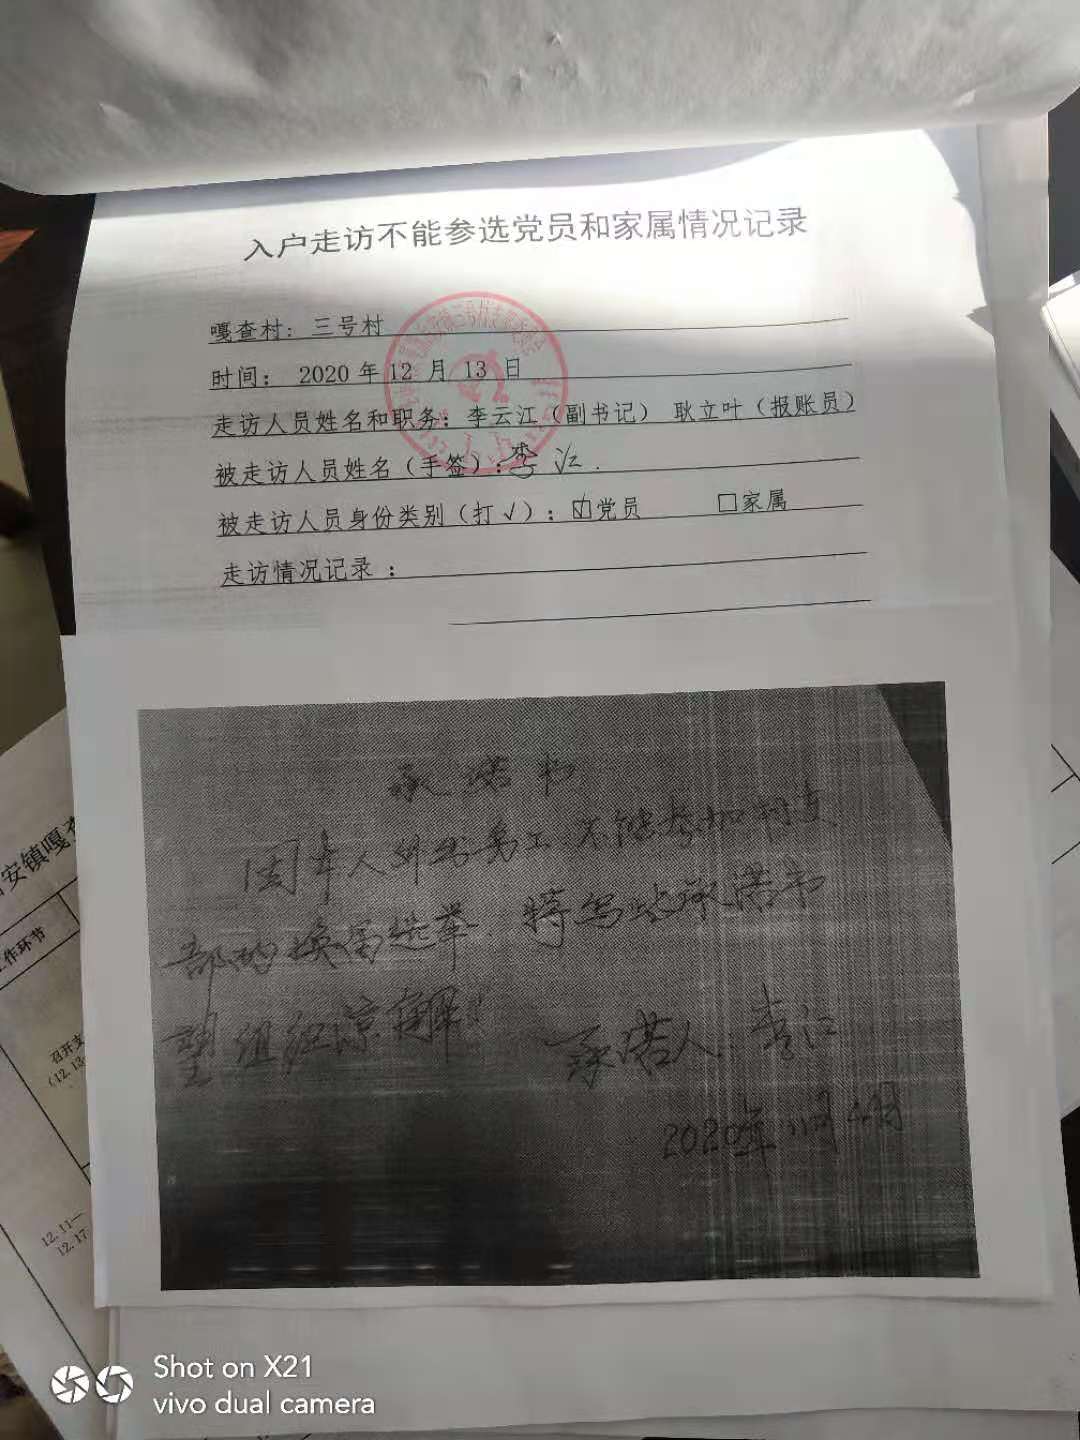 入户走访不能参选党员和家属情况记录
嘎查村：三号村
时间： 2020年12月 13 日
走访人员姓名和职务：李云江（副书记） 耿立叶（报账员）
被走访人员姓名（手签）：李江.
被走访人员身份类别（打√）：☑党员 □家属
走访情况记录：
承诺书
因本人外出务工.不能参加村支
部的换届选举.特写此承诺书
望组织谅解！
承诺人.李江
2020年11月4日
安镇嘎查
工作环节
召开支
（12.13
12.11—
12.17
Shot on X21
vivo dual camera